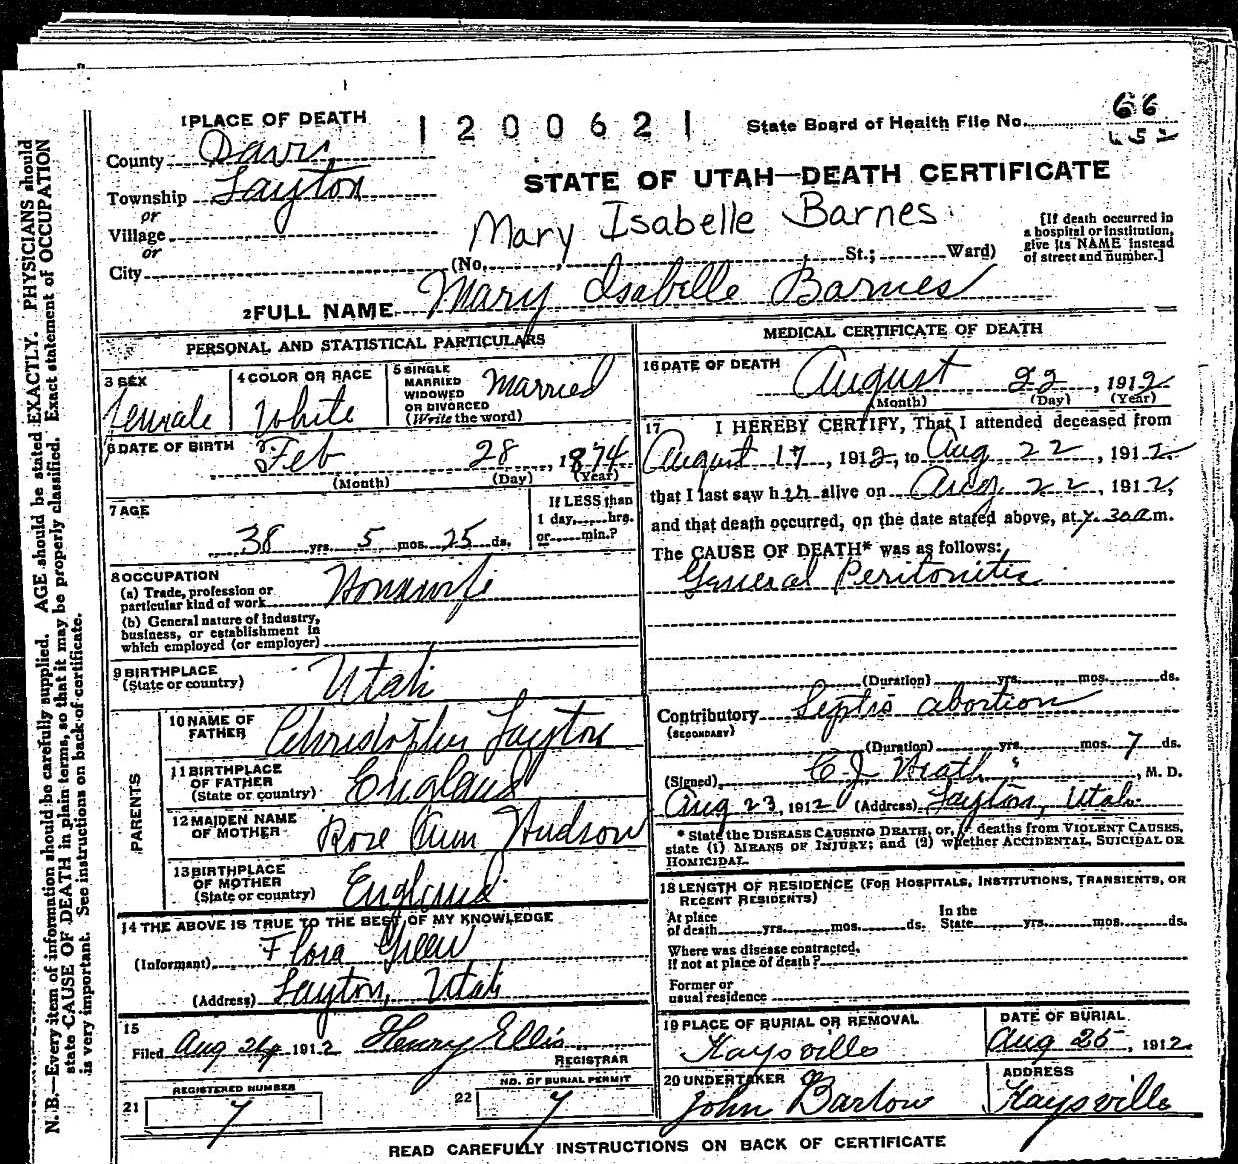 1 PLACE OF DEATH
1200621
State Board of Health File No. 66
652
County Davis
Township Layton
or
Village
or
City
STATE OF UTAH—DEATH CERTIFICATE
Mary Isabelle Barnes
(No. , St.; Ward)
[If death occurred in
a hospital or institution,
give its NAME instead
of street and number.]
2 FULL NAME Mary Isabelle Barnes
PERSONAL AND STATISTICAL PARTICULARS
3 SEX
Female
4 COLOR OR RACE
White
5 SINGLE
MARRIED
WIDOWED
OR DIVORCED
(Write the word)
Married
6 DATE OF BIRTH
Feb 28, 1874
(Month) (Day) (Year)
7 AGE
38 yrs. 5 mos. 25 ds.
If LESS than
1 day, hrs.
or min.?
8 OCCUPATION
(a) Trade, profession or
particular kind of work Housewife
(b) General nature of industry,
business, or establishment in
which employed (or employer)
9 BIRTHPLACE
(State or country)
Utah
PARENTS
10 NAME OF
FATHER
Christopher Layton
11 BIRTHPLACE
OF FATHER
(State or country)
England
12 MAIDEN NAME
OF MOTHER
Rose Ann Hudson
13 BIRTHPLACE
OF MOTHER
(State or country)
England
14 THE ABOVE IS TRUE TO THE BEST OF MY KNOWLEDGE
(Informant) Flora Green
(Address) Layton, Utah
15
Filed Aug 24, 1912 Henry Ellis
REGISTRAR
REGISTERED NUMBER
21 7
NO. OF BURIAL PERMIT
22 7
MEDICAL CERTIFICATE OF DEATH
16 DATE OF DEATH
August 22, 1912
(Month) (Day) (Year)
17 I HEREBY CERTIFY, That I attended deceased from
August 17, 1912, to Aug 22, 1912
that I last saw her alive on Aug. 22, 1912,
and that death occurred, on the date stated above, at 7.30 a m.
The CAUSE OF DEATH* was as follows:
General Peritonitis
(Duration) yrs. mos. ds.
Contributory Septic abortion
(SECONDARY)
(Duration) yrs. mos. 7 ds.
(Signed) , M. D.
Aug 23, 1912 (Address) Layton, Utah
* State the DISEASE CAUSING DEATH, or, in deaths from VIOLENT CAUSES,
state (1) MEANS OF INJURY; and (2) whether ACCIDENTAL, SUICIDAL OR
HOMICIDAL.
18 LENGTH OF RESIDENCE (FOR HOSPITALS, INSTITUTIONS, TRANSIENTS, OR
RECENT RESIDENTS)
At place
of death yrs. mos. ds.
In the
State yrs. mos. ds.
Where was disease contracted,
if not at place of death?
Former or
usual residence
19 PLACE OF BURIAL OR REMOVAL
Kaysville
DATE OF BURIAL
Aug 25, 1912.
20 UNDERTAKER
John Barlow
ADDRESS
Kaysville
READ CAREFULLY INSTRUCTIONS ON BACK OF CERTIFICATE
N. B.—Every item of information should be carefully supplied. AGE should be stated EXACTLY. PHYSICIANS should
state CAUSE OF DEATH in plain terms, so that it may be properly classified. Exact statement of OCCUPATION
is very important. See instructions on back of certificate.